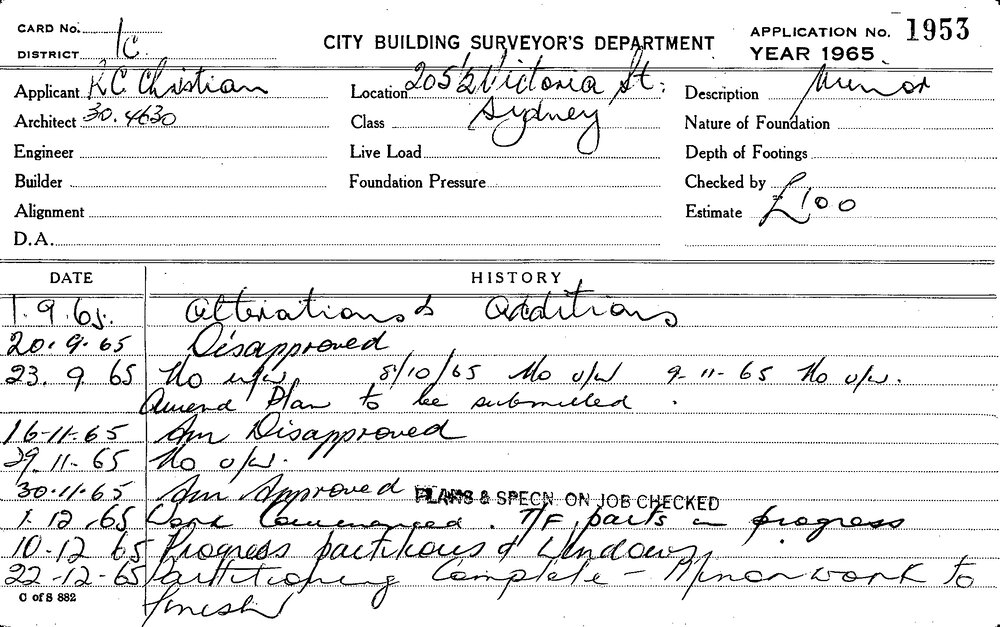 CARD No.
DISTRICT 1C.
CITY BUILDING SURVEYOR'S DEPARTMENT
APPLICATION No. 1953
YEAR 1965
Applicant R C Christian
Location 205 1/2 Victoria St.
Sydney
Description Minor
Architect 30.4630
Class
Nature of Foundation
Engineer
Live Load
Depth of Footings
Builder
Foundation Pressure
Checked by
Alignment
Estimate £100
D.A.
DATE HISTORY
1.9.65. Alterations & Additions
20.9.65 Disapproved
23.9 65 No u/w 8/10/65 No u/w 9-11-65 No u/w.
Amend Plan to be submitted.
16-11-65 Am Disapproved
29.11-65 No u/w.
30.11.65 Am Approved PLANS & SPECN. ON JOB CHECKED
1.12.65 Work Commenced. T/F parts in progress
10-12 65 Progress partitions & Windows,
22-12-65 Partitioning Complete - Minor work to
finish
C of S 882